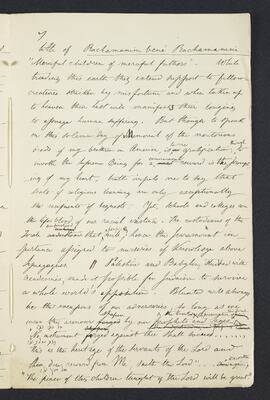 7
title of Rachamanim bené Rachamanim
"Merciful children of merciful fathers". While
treading this earth they extend support to fellow
creatures stricken by misfortune and when taken up
to heaven their last wills manifest their longing
to assuage human suffering. But though to speak
on this solemn day of Memorial of the meritorious
deeds of my brethren in America, is to me gratification; though
to invoke the Supreme Being for a reward is the prompting
of my heart, truth impels me to say that
seats of religious learning are only exceptionally
the recipients of bequests. Yet, schools and colleges are
the life blood of our racial existence. The custodians of the
Torah understood that
assigned to nurseries of knowledge above
Synagogues. Palestine and Babylon, studded with
Academies, made it possible for Judaism to survive
a whole world's opposition. Blunted will always
be the weapons of an adversary, so long as we
wear the armour
"No instrument forged against thee shall succeed
this is the heritage of the servants of the Lord and
their reward from Me, saith the Lord".
"the peace of thy children taught of the Lord will be great"